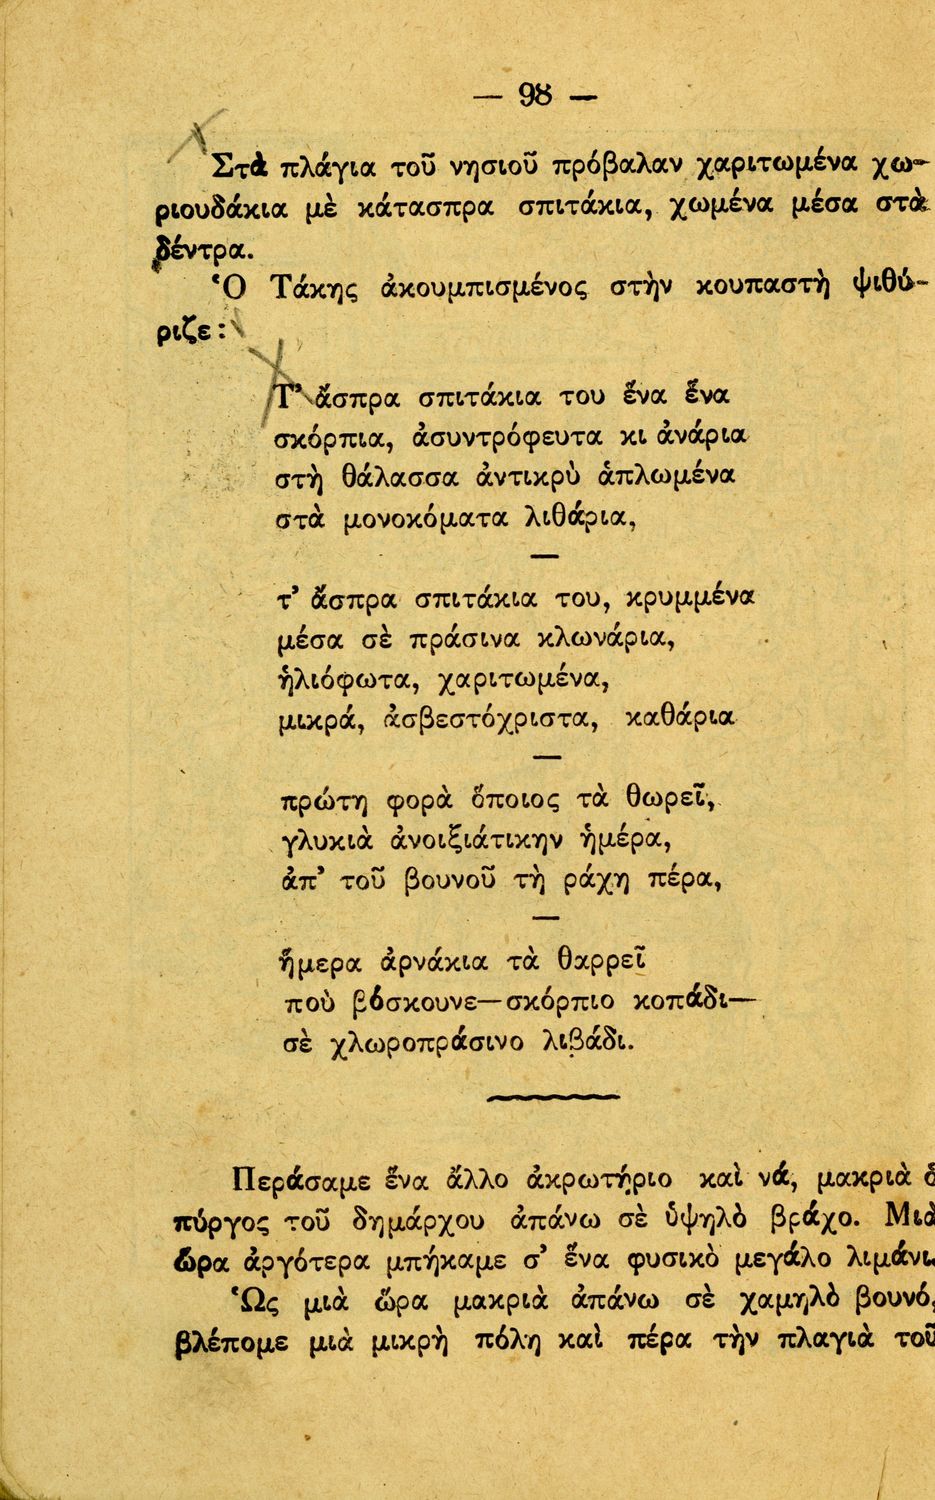 — 98 —
Στὰ πλάγια τοῦ νησιοῦ πρόβαλαν χαριτωμένα χω-
ριουδάκια μὲ κάτασπρα σπιτάκια, χωμένα μέσα στὰ
δέντρα.
Ὁ Τάκης ἀκουμπισμένος στὴν κουπαστὴ ψιθύ-
ριζε:
Τ' ἄσπρα σπιτάκια του ἕνα ἕνα
σκόρπια, ἀσυντρόφευτα κι ἀνάρια
στὴ θάλασσα ἀντικρὺ ἁπλωμένα
στὰ μονοκόματα λιθάρια,
—
τ' ἄσπρα σπιτάκια του, κρυμμένα
μέσα σὲ πράσινα κλωνάρια,
ἡλιόφωτα, χαριτωμένα,
μικρά, ἀσβεστόχριστα, καθάρια
—
πρώτη φορὰ ὅποιος τὰ θωρεῖ,
γλυκιὰ ἀνοιξιάτικην ἡμέρα,
ἀπ' τοῦ βουνοῦ τὴ ράχη πέρα,
—
ἥμερα ἀρνάκια τὰ θαρρεῖ
ποὺ βόσκουνε—σκόρπιο κοπάδι—
σὲ χλωροπράσινο λιβάδι.
Περάσαμε ἕνα ἄλλο ἀκρωτήριο καὶ νά, μακριὰ ὁ
πύργος τοῦ δημάρχου ἀπάνω σὲ ὑψηλὸ βράχο. Μιὰ
ὥρα ἀργότερα μπήκαμε σ' ἕνα φυσικὸ μεγάλο λιμάνι.
Ὡς μιὰ ὥρα μακριὰ ἀπάνω σὲ χαμηλὸ βουνό,
βλέπομε μιὰ μικρὴ πόλη καὶ πέρα τὴν πλαγιὰ τοῦ